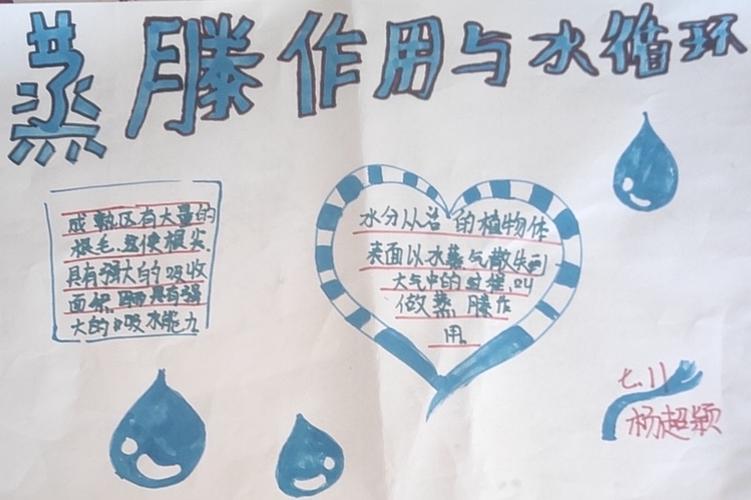 蒸腾作用与水循环
成熟区有大量的
根毛，致使根尖
具有强大的吸收
面积，具有强
大的吸水能力
水分从活的植物体
表面以水蒸气散失到
大气中的过程，叫
做蒸腾作
用。
七.11
杨超颖